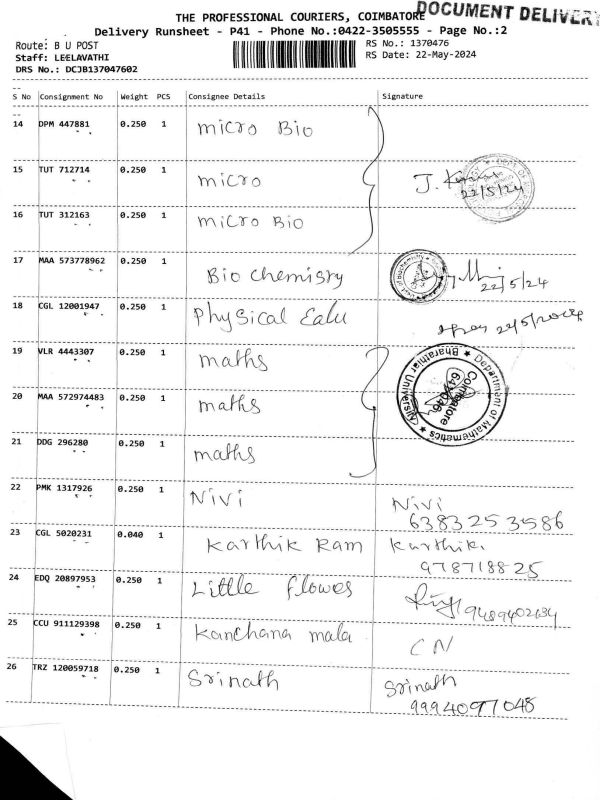 THE PROFESSIONAL COURIERS, COIMBATORE
DOCUMENT DELIVERY
Delivery Runsheet - P41 - Phone No.:0422-3505555 - Page No.:2
Route: B U POST
RS No.: 1370476
Staff: LEELAVATHI
RS Date: 22-May-2024
DRS No.: DCJB137047602
S No Consignment No Weight PCS Consignee Details Signature
14 DPM 447881 0.250 1 micro Bio
15 TUT 712714 0.250 1 micro J. 22/5/24
16 TUT 312163 0.250 1 micro Bio
17 MAA 573778962 0.250 1 Bio chemisry 22/5/24
18 CGL 12001947 0.250 1 Physical Edu
19 VLR 4443307 0.250 1 maths
Department of Mathematics ★ Bharathiar University ★ Coimbatore 641046
20 MAA 572974483 0.250 1 maths
21 DDG 296280 0.250 1 maths
22 PMK 1317926 0.250 1 Nivi Nivi
6383253586
23 CGL 5020231 0.040 1 Karthik Ram Karthik.
978718825
24 EDQ 20897953 0.250 1 Little flowes 9489402134
25 CCU 911129398 0.250 1 Kanchana mala CN
26 TRZ 120059718 0.250 1 Srinath Srinath
9994097048